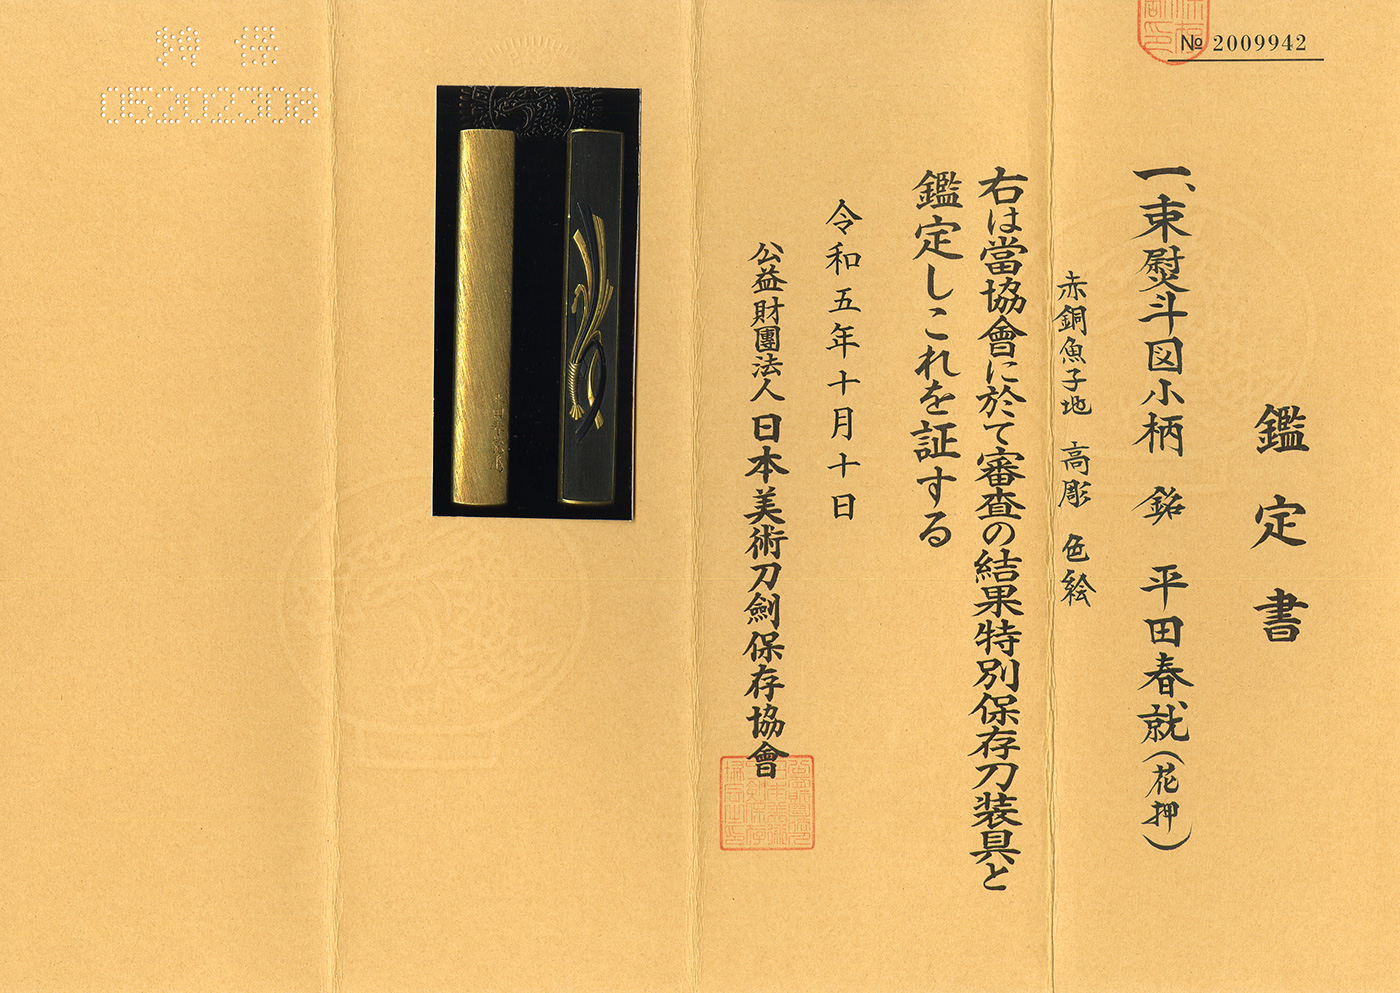 № 2009942
鑑定書
一、束熨斗図小柄 銘 平田春就(花押)
赤銅魚子地 高彫 色絵
右は當協會に於て審査の結果特別保存刀装具と
鑑定しこれを証する
令和五年十月十日
公益財團法人 日本美術刀劍保存協會
05202308